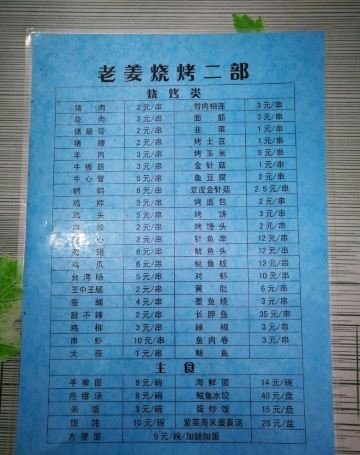 老姜烧烤二部
烧烤类
猪肉 2元/串 骨肉相连 3元/串
花肉 2元/串 面筋 3元/串
猪脆骨 2元/串 韭菜 1元/串
猪腰 2元/串 烤土豆 1元/串
羊肉 3元/串 烤玉米 5元/串
牛板筋 5元/串 金针菇 1元/串
牛心管 5元/串 鱼豆腐 2元/串
鹌鹑 6元/串 豆皮金针菇 2.5元/串
鸡脖 3元/串 烤面包 2元/串
鸡头 5元/串 烤饼 3元/串
鸡珍 2元/串 烤馒头 2元/串
心 2元/串 针鱼串 12元/串
鸡翅 8元/串 鱿鱼头 12元/串
鸡爪 6元/串 鱿鱼板 12元/串
台湾肠 5元/串 对虾 10元/串
王中王肠 2元/串 黄肚 6元/串
蚕蛹 4元/串 墨鱼烧 3元/串
甜不辣 2元/串 长脖鱼 35元/串
鸡柳 3元/串 辣椒 3元/串
串虾 10元/串 鱼肉卷 3元/串
大蒜 1元/串 鱼
主食
手擀面 8元/碗 海鲜面 14元/碗
疙瘩汤 8元/碗 鲅鱼水饺 40元/盘
米饭 3元/碗 蛋炒饭 15元/盆
馄饨 10元/碗 紫菜海米蛋黄汤 20元/盆
方便面 9元/碗/加肠加蛋